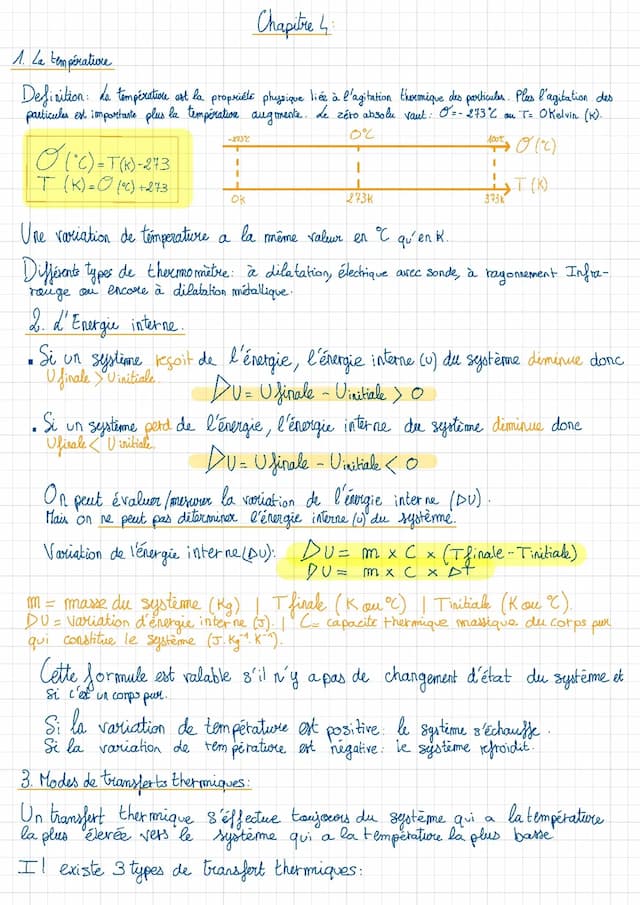 Chapitre 4:
1. La température
Définition: La température est la propriété physique liée à l'agitation thermique des particules. Plus l'agitation des
particules est importante plus la température augmente. Le zéro absolu vaut: Ơ=-273°C ou T= 0Kelvin (K).
Ơ(°C)=T(K)-273
T (K)=Ơ(°C)+273
-273°C 0°C 100°C Ơ(°C)
0K 273K 373K T(K)
Une variation de température a la même valeur en °C qu'en K.
Différents types de thermomètre: à dilatation, électrique avec sonde, à rayonnement Infra-
rouge ou encore à dilatation métallique.
2. L'Energie interne.
▪ Si un système reçoit de l'énergie, l'énergie interne (U) du système diminue donc
U finale > U initiale.
DU= U finale - Uinitiale > 0
▪ Si un système perd de l'énergie, l'énergie interne du système diminue donc
Ufinale < U initiale.
DU= U finale - Uinitiale < 0
On peut évaluer/mesurer la variation de l'énergie interne (DU).
Mais on ne peut pas déterminer l'énergie interne (U) du système.
Variation de l'énergie interne(DU): DU= m x C x (Tfinale-Tinitiale)
DU= m x C x Dt
m = masse du système (Kg) | T finale (K ou °C) | Tinitiale (K ou °C).
DU= variation d'énergie interne (J). | C= capacité thermique massique du corps pur
qui constitue le système (J.Kg⁻¹.K⁻¹).
Cette formule est valable s'il n'y a pas de changement d'état du système et
si c'est un corps pur.
Si la variation de température est positive: le système s'échauffe.
Si la variation de température est négative: le système refroidit.
3. Modes de transferts thermiques:
Un transfert thermique s'éffectue toujours du système qui a la température
la plus élevée vers le système qui a la température la plus basse
Il existe 3 types de transfert thermiques: